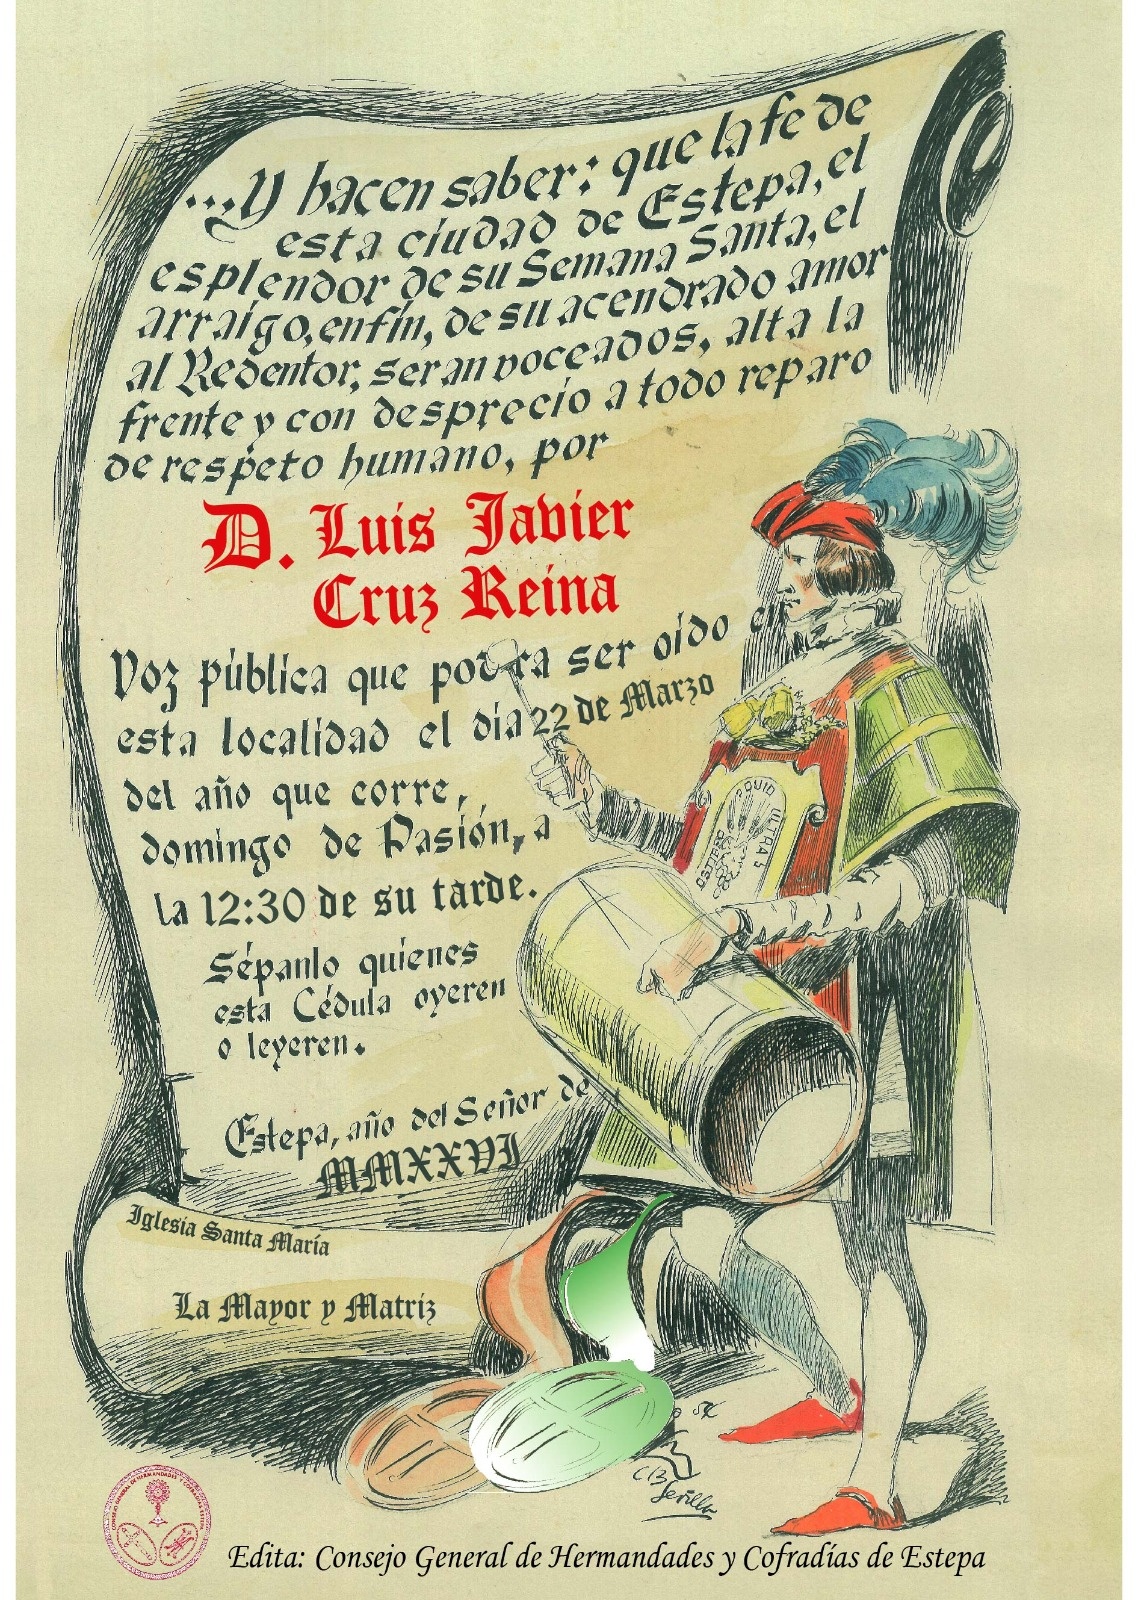 ...Y hacen saber: que la fe de
esta ciudad de Estepa, el
esplendor de su Semana Santa, el
arraigo, enfin, de su acendrado amor
al Redentor, seran voceados, alta la
frente y con desprecio a todo reparo
de respeto humano, por
D. Luis Javier
Cruz Reina
Voz pública que podra ser oido en
esta localidad el dia 22 de Marzo
del año que corre,
domingo de Pasión, a
la 12:30 de su tarde.
Sépanlo quienes
esta Cédula oyeren
o leyeren.
Estepa, año del Señor de
MMXXVI
Iglesia Santa María
La Mayor y Matriz
ULTRA
Sevilla
CONSEJO GENERAL DE HERMANDADES Y COFRADIAS ESTEPA
Edita: Consejo General de Hermandades y Cofradías de Estepa